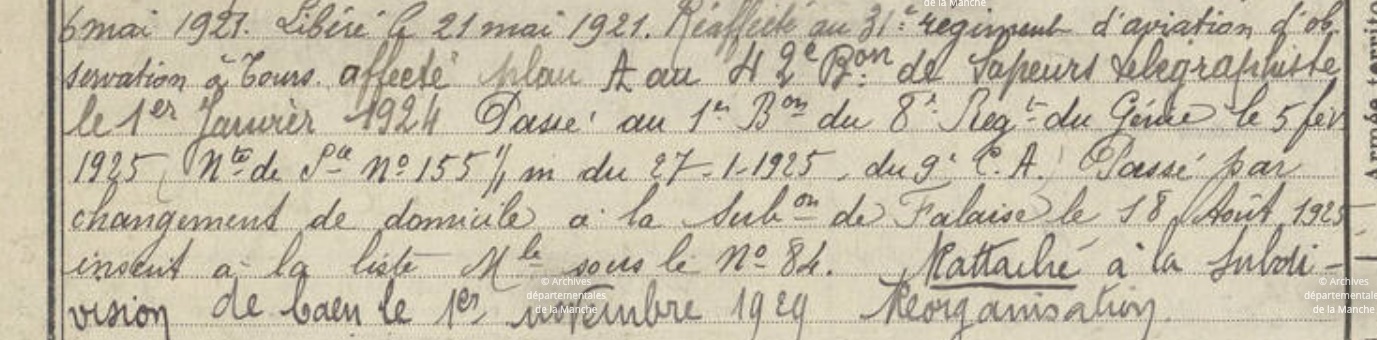 6 mai 1921. Libéré le 21 mai 1921. Réaffecté au 31e regiment d'aviation d'ob
servation à Tours. affecté plan A au 42e Bon de Sapeurs telegraphiste
le 1er Janvier 1924 Passé au 1er Bon du 8e Regt du Génie le 5 fév
1925 (Nte de Sce No 155 1/1 m du 27-1-1925, du 9e C.A.) Passé par
changement de domicile à la Subon de Falaise le 18 Août 1925
inscrit à la liste Mle sous le No 84. Rattaché à la Subdi-
vision de Caen le 1er novembre 1929 Réorganisation.
Armée territo
© Archives
départementales
de la Manche
© Archives
départementales
de la Manche
de la Manche
de la Manche